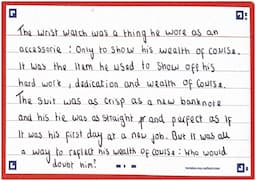 The wrist watch was a thing he wore as an
accessorie : Only to show his wealth of course.
It was the item he used to show off his
hard work, dedication and wealth of course.
The suit was as crisp as a new banknote
and his tie was as straight and perfect as if
it was his first day at a new job. But it was all
a way to reflect his wealth of course : who would
doubt him?